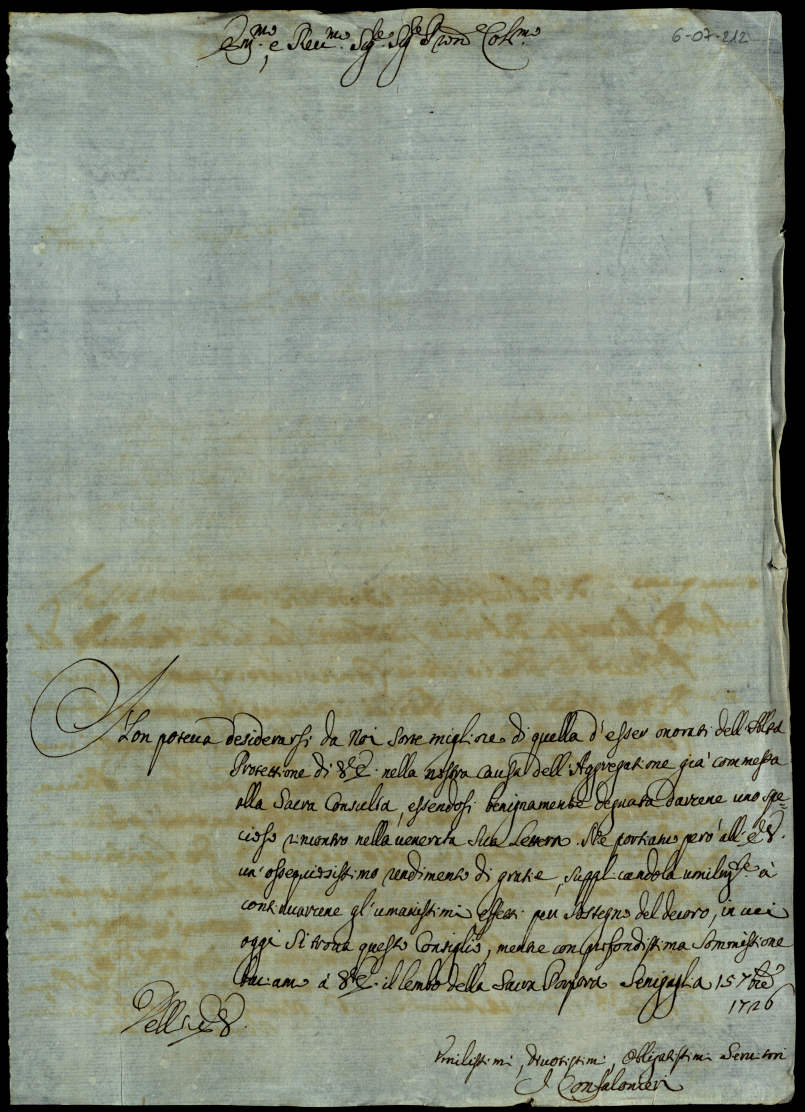 Em.mo e Reu.mo Sig.re Sig.re Pron.e Col.mo
6-07-212
Non poteua desiderarsi da Noi sorte migliore di quella d'esser onorati dell'Alta
Protettione di V. E. nella nostra causa dell'Aggregatione già commessa
alla Sacra Consulta, essendosi benignamente degnata darcene uno spe=
cioso rincontro nella uenerata Sua Lettera. Ne portiamo però all' E. V.
un' ossequiosissimo rendimento di gratie, supplicandola umilm.te à
continuarcene gl'umanissimi effetti per sostegno del decoro, in cui
oggi si troua questo Consiglio, mentre con profondissima sommissione
baciamo à V. E. il lembo della Sacra Porpora Senigaglia 15 7bre
1726
Dell' E. V.
Umilissimi, Deuotissimi, Obligatissimi Seruitori
I Confalonieri